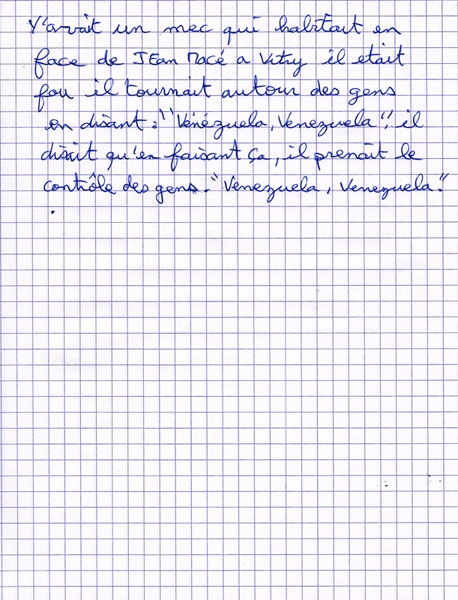 Y'avait un mec qui habitait en
face de JEan Macé a Vitry il etait
fou il tournait autour des gens
en disant : "Vénézuela, Venezuela", il
disait qu'en faisant ça, il prenait le
contrôle des gens. "Venezuela, Venezuela."